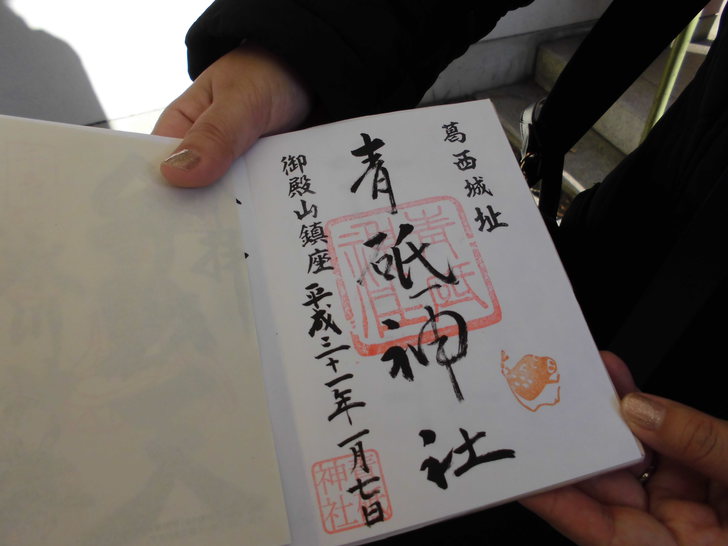 葛西城址
青砥神社
御殿山鎮座 平成三十一年一月七日
青砥神社
神社